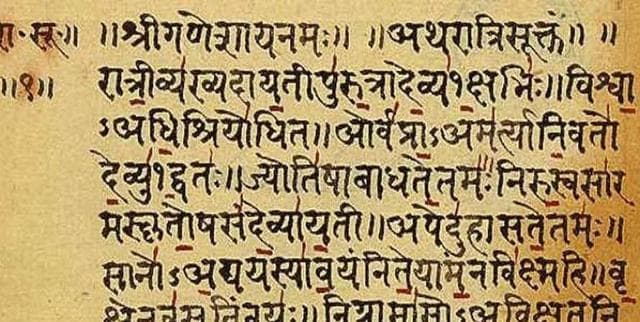 रा॰सू॰॥ ॥श्रीगणेशायनमः॥ ॥अथरात्रिसूक्तं॥ ॥
॥१॥ रात्रीव्यख्यदायतीपुरुत्रादेव्य१क्षभिः॥विश्वा
ऽअधिश्रियोधित॥ओर्वप्राऽअमर्त्यानिवतो
देव्यु१द्वतः॥ज्योतिषाबाधतेतमः॥निरुस्वसार
मस्कृतोषसंदेव्यायती॥अपेदुहासतेतमः॥
सानोऽअद्ययस्यावयंनितेयामंनविक्ष्महि॥वृ
क्षेनवसतिंवयः॥निग्रामासोऽअविक्षतनि